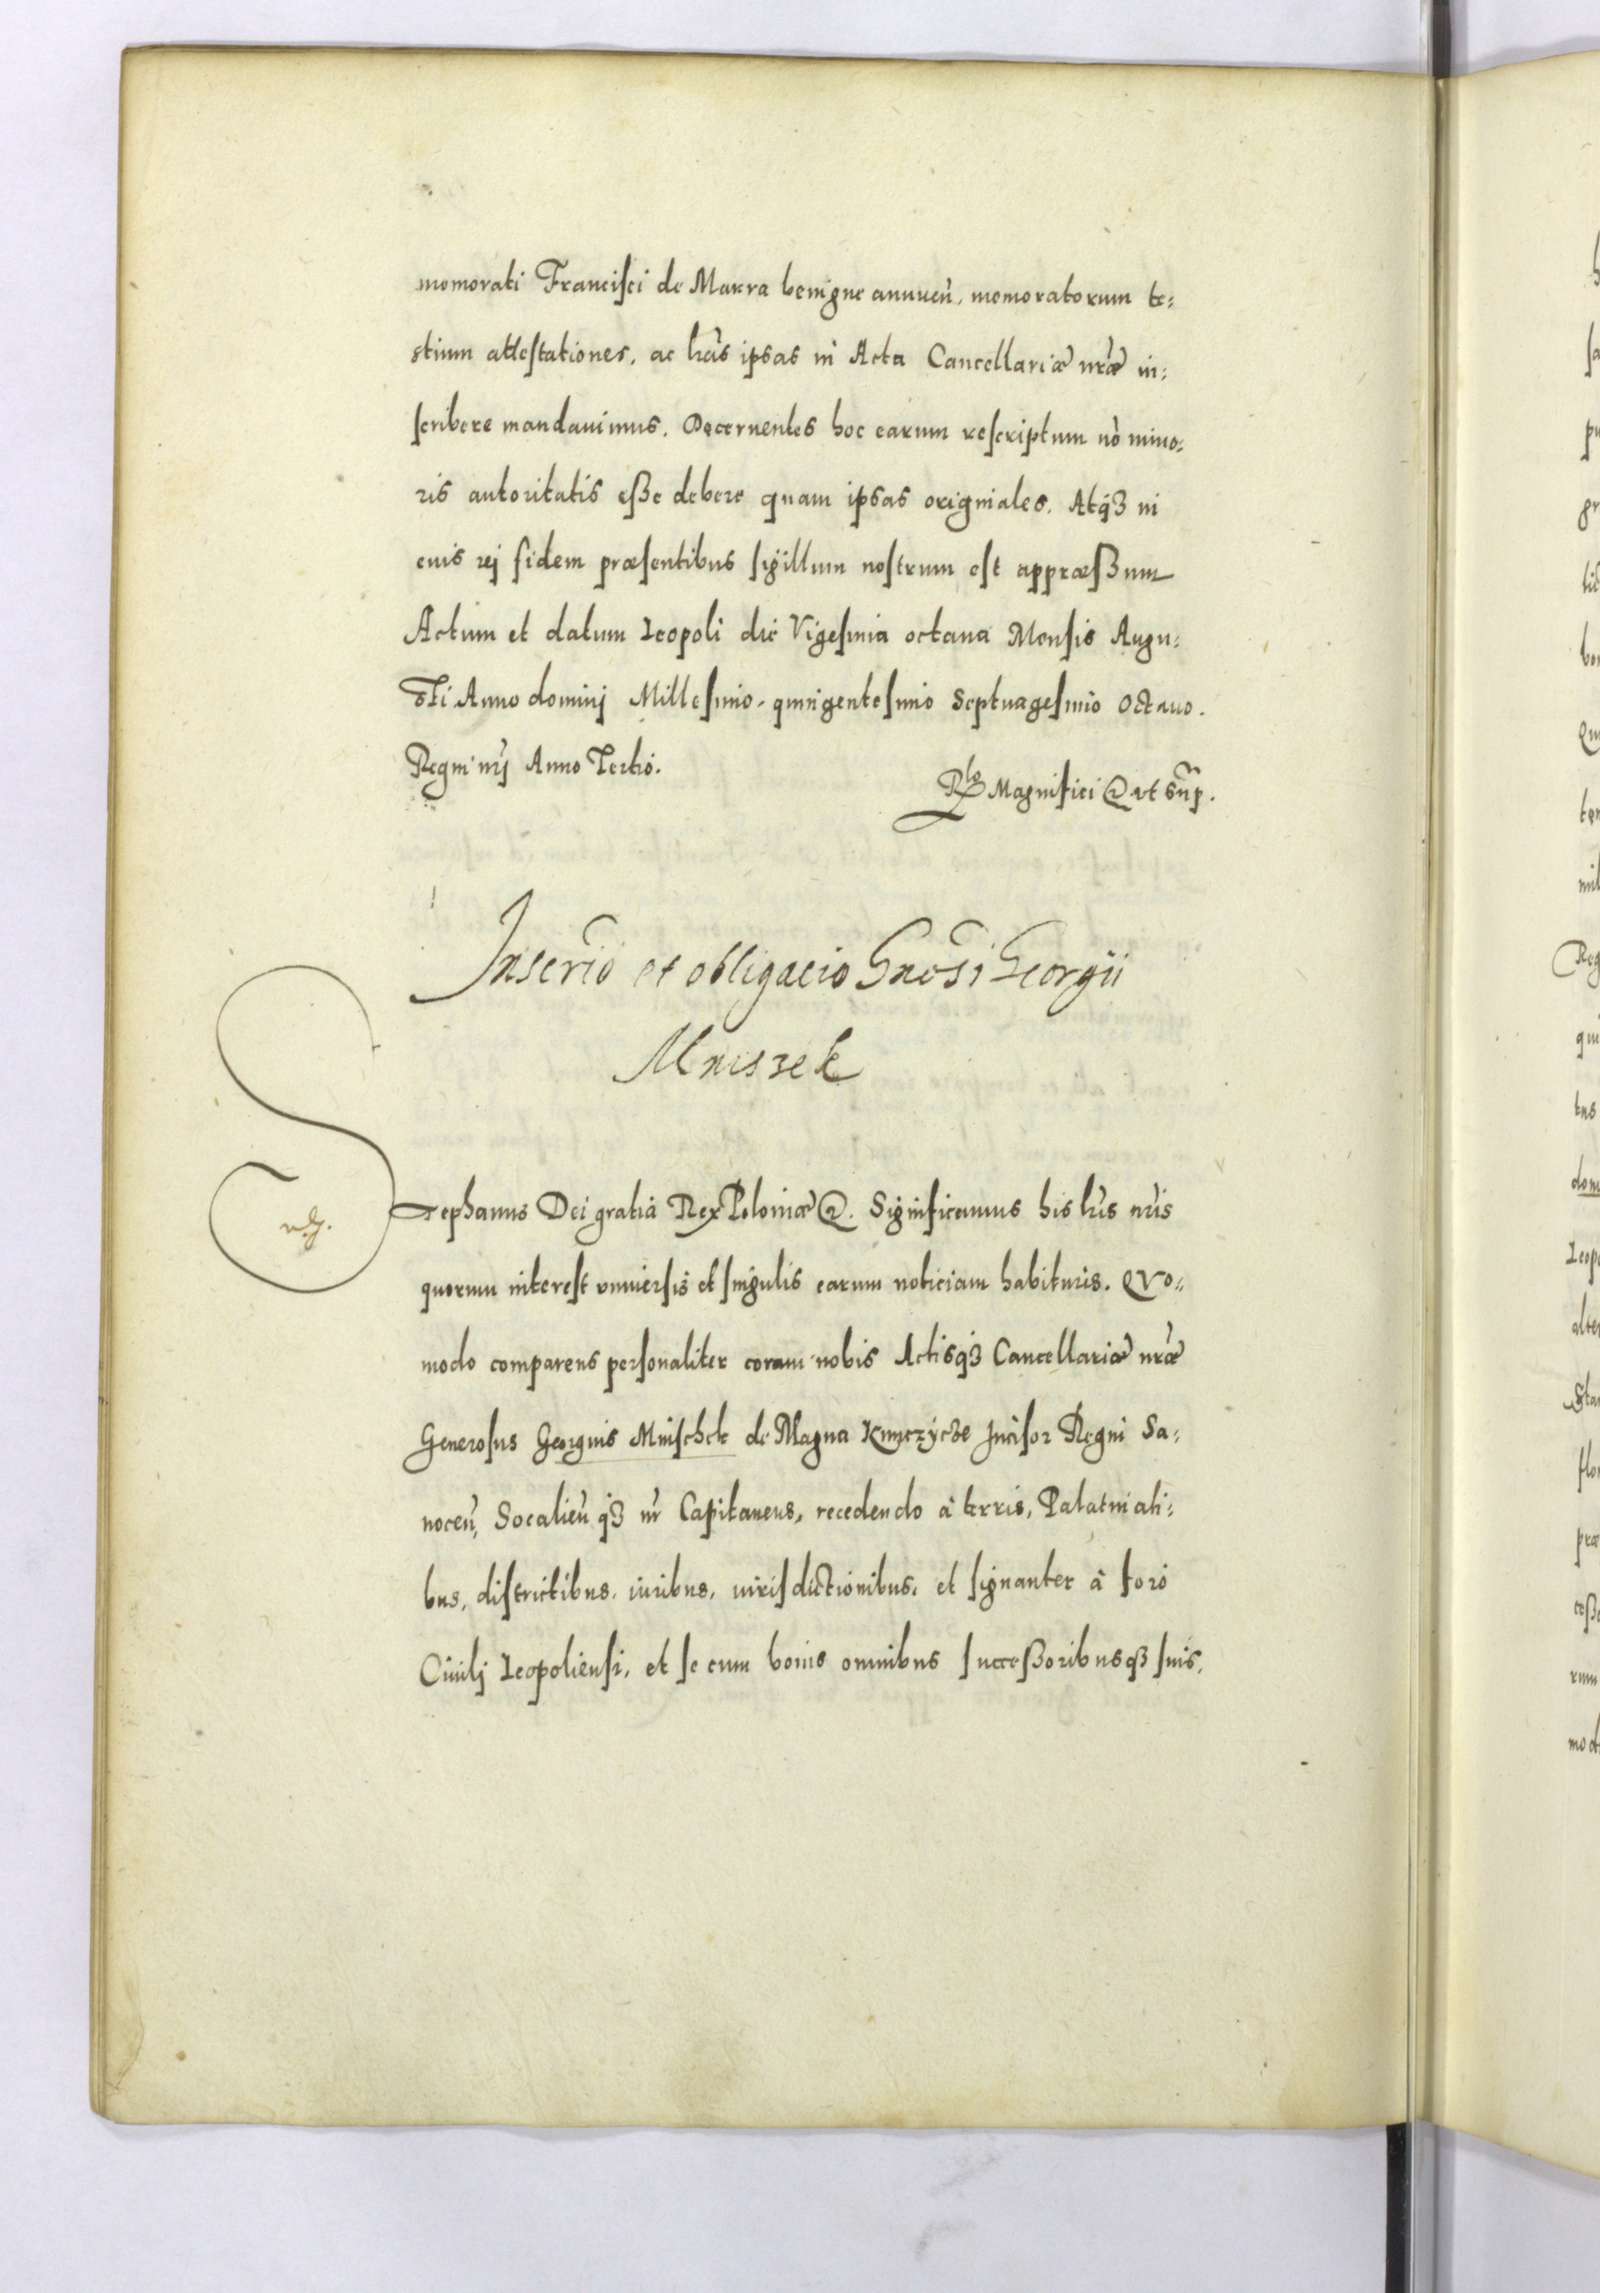 memorati Francisci de Marra benigne annueñ, memoratorum te=
stium attestationes, ac lr̃as ipsas in Acta Cancellariæ nr̃æ in=
scribere mandauimus. Decernentes hoc earum rescriptum nõ mino=
ris autoritatis eße debere quam ipsas originales. Atq̃ꝫ in
cuis rej fidem præsentibus sigillum nostrum est appræßum
Actum et datum Leopoli die Vigesima octaua Mensis Augu=
sti Anno dominj Millesimo. quingentesimo Septuagesimo Octauo.
Regni nr̃j Anno Tertio.
Rlo Magnifici @ vt sup̃.
Inscrió et obligacio Gnõsi Georgii
Mniszek
Stephanus Dei gratia Rex Poloniæ @. Significamus his lr̃is nr̃is
quorum interest vniuersis et singulis earum noticiam habituris. Quo=
modo comparens personaliter coram nobis Actisq̃ꝫ Cancellariæ nr̃æ
Generosus Georgius Mnischek de Magna Kunczycze Incisor Regni Sa=
noceñ, Socalieñ q̃ꝫ nr̃ Capitaneus, recedendo à terris, Palatinali=
bus, districtibus, iuribus, iurisdictionibus, et signanter à foro
Ciuilj Leopoliensi, et se cum bonis omnibus succeßoribusqꝫ suis,